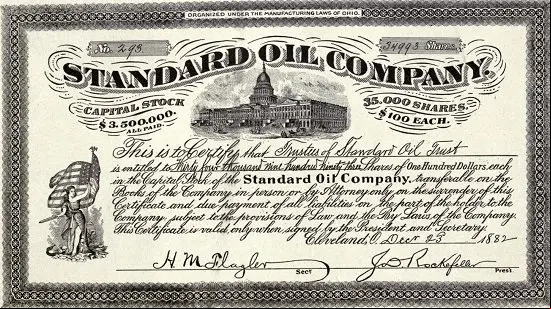 ORGANIZED UNDER THE MANUFACTURING LAWS OF OHIO.
No. 295
34993 Shares.
STANDARD OIL COMPANY.
CAPITAL STOCK
$3.500.000.
ALL PAID.
35.000 SHARES.
$100 EACH.
This is to Certify that Trustees of Standard Oil Trust
is entitled to Thirty four thousand nine hundred ninety three Shares of One Hundred Dollars each
in the Capital Stock of the Standard Oil Company, transferable on the
Books of the Company in person or by Attorney only on the surrender of this
Certificate and due payment of all liabilities on the part of the holder to the
Company, subject to the provisions of Law and the By Laws of the Company.
This Certificate is valid only when signed by the President and Secretary.
Cleveland, O. Decr 23 1882
H M Flagler Sect
J. D. Rockefeller Prest.